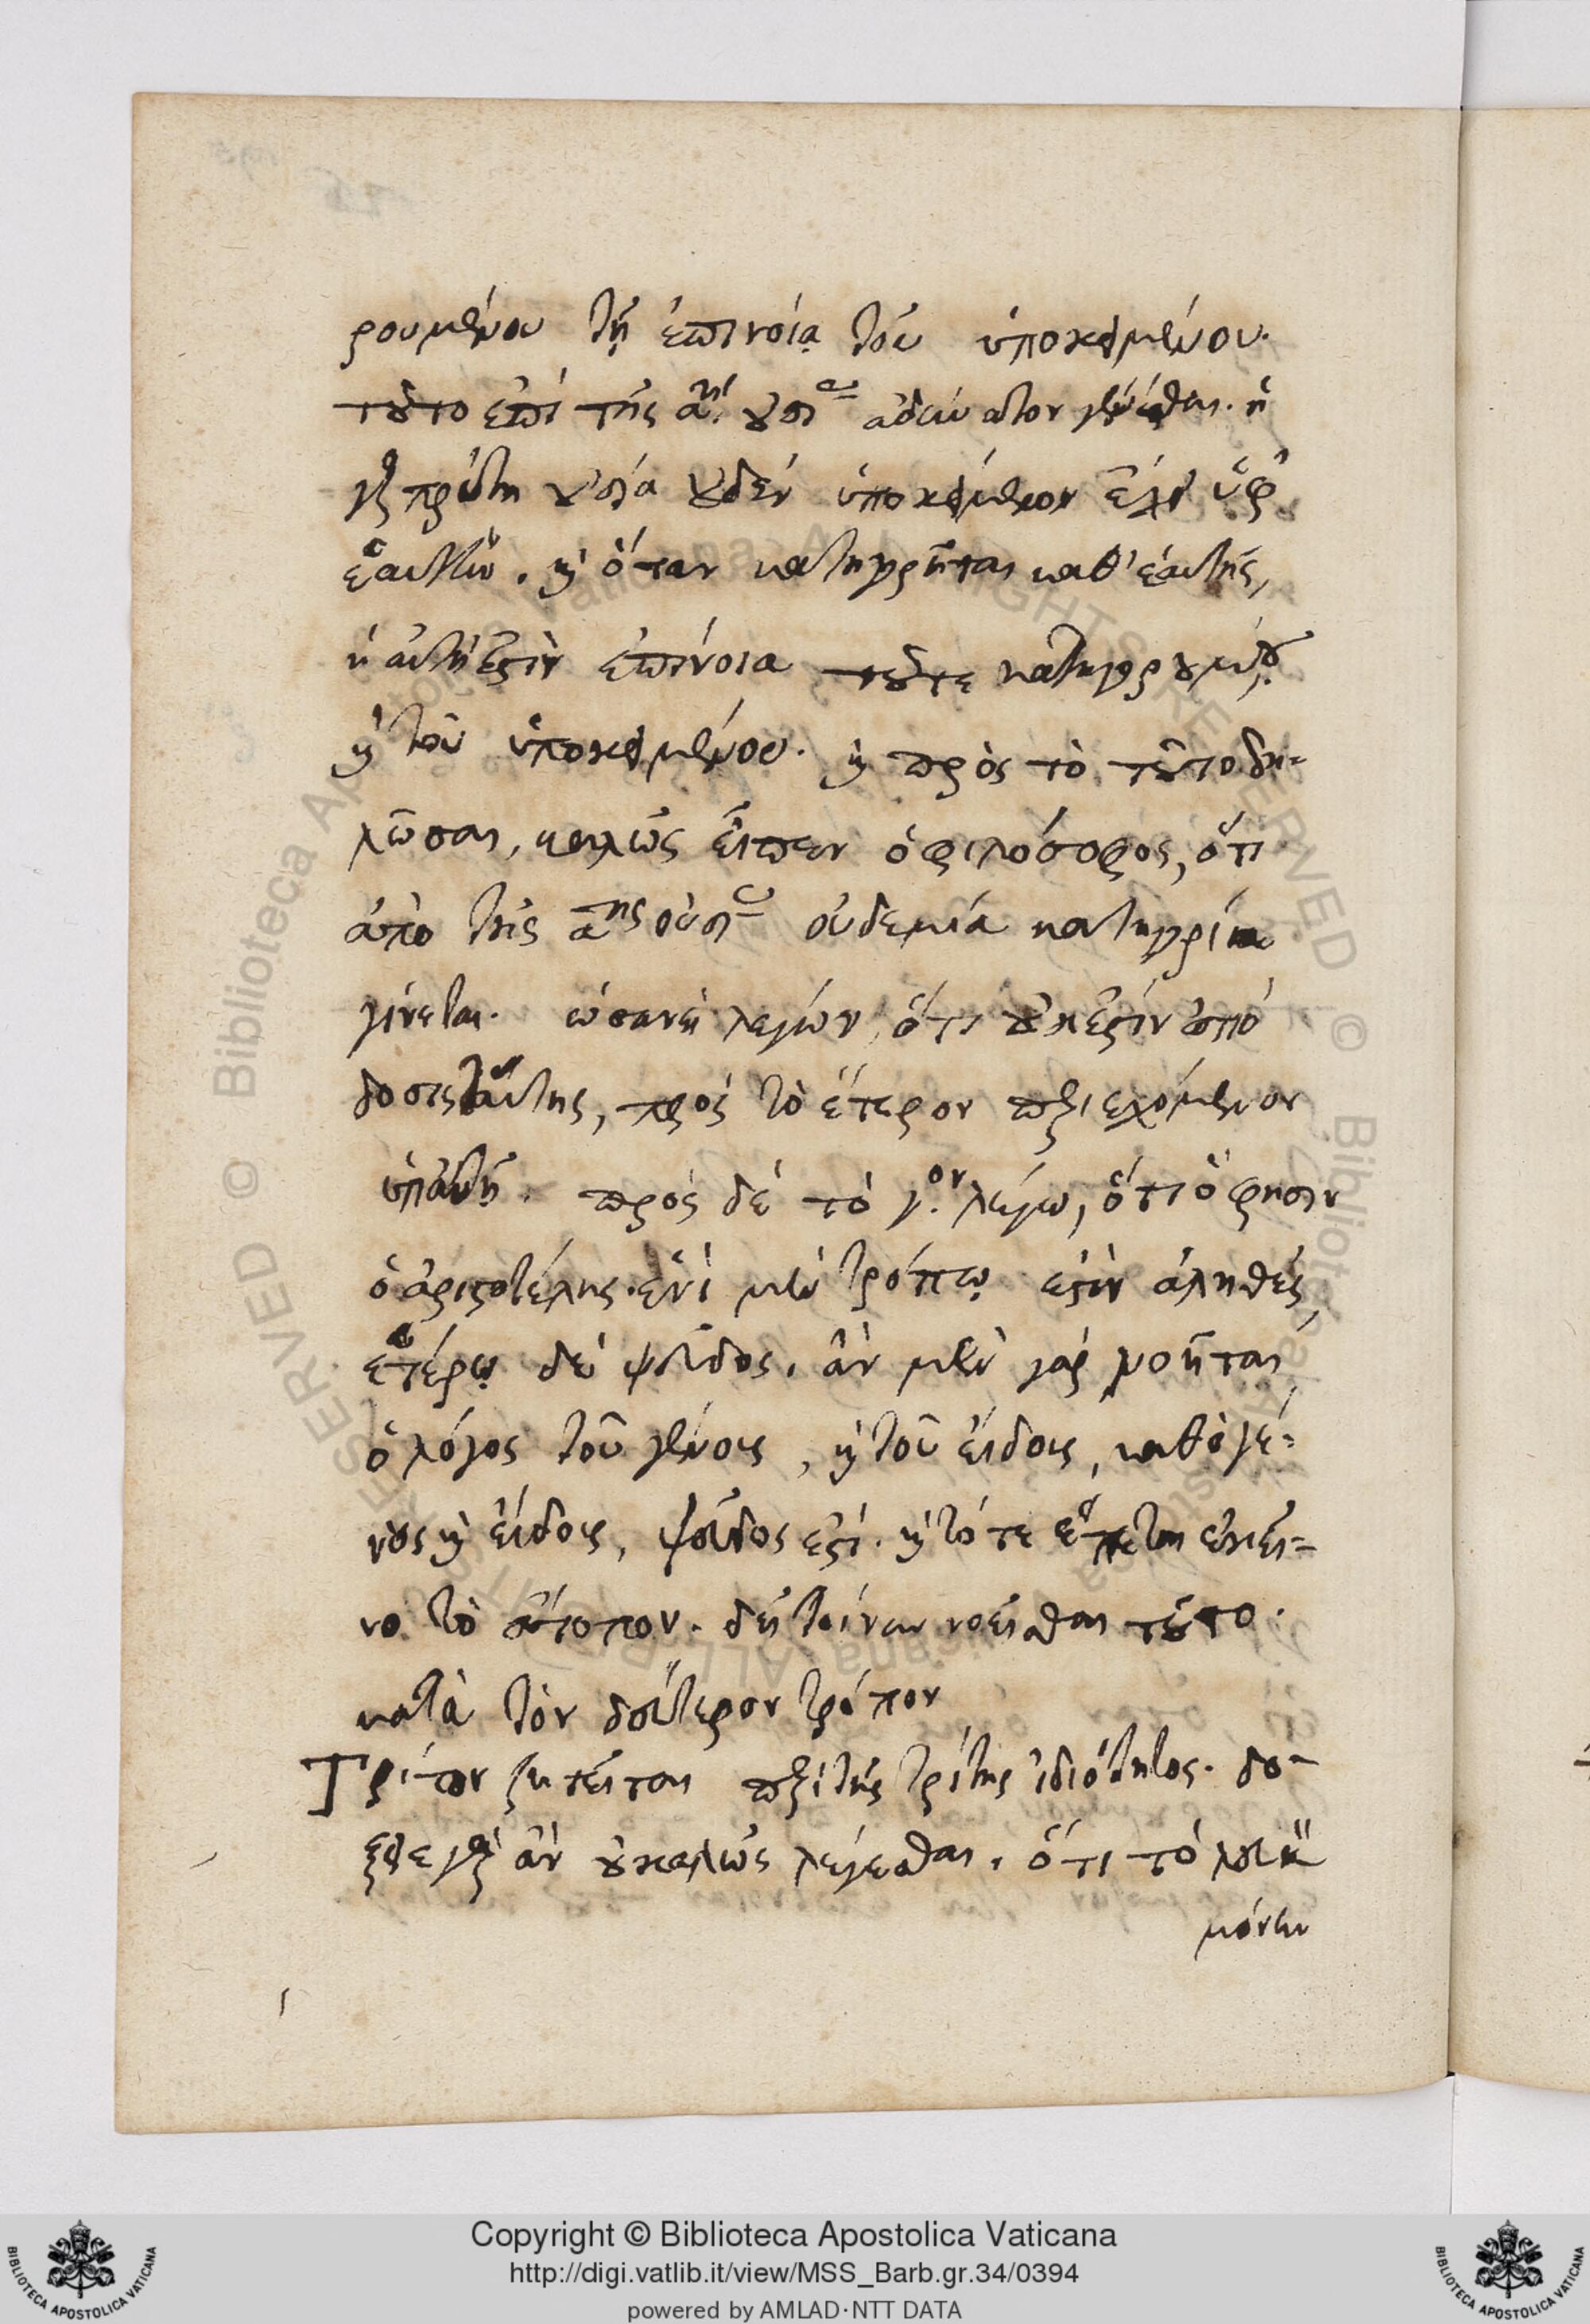 ρουμένου τῇ ἐπινοίᾳ τοῦ ὑποκειμένου.
τοῦτο ἐπὶ τῆς αης οὐσίας ἀδύνατον γενέσθαι. ἡ
γὰρ πρώτη οὐσία οὐδὲν ὑποκείμενον ἔχει ὑφ'
ἑαυτὴν. καὶ ὅταν κατηγορῆται καθ' ἑαυτῆς,
ἡ αὐτή ἐστιν ἐπίνοια τοῦτε κατηγορουμένου
καὶ τοῦ ὑποκειμένου. καὶ πρὸς τὸ τοῦτο δη-
λῶσαι, καλῶς εἶπεν ὁ φιλόσοφος, ὅτι
ἀπὸ τῆς αης οὐσίας οὐδεμία κατηγορία
γίνεται. ὡσανεὶ λέγων ὅτι οὐκ ἔστιν ἀπό
δοσις ταύτης, πρὸς τὸ ἕτερον περιεχόμενον
ὑπ' αὐτῇ. πρὸς δὲ τὸ γ.ον λέγω, ὅτι ὅ φησιν
ὁ ἀριστοτέλης. ἑνὶ μὲν τρόπῳ ἐστὶν ἀληθές,
ἑτέρῳ δὲ ψεῦδος. ἂν μὲν γὰρ νοῆται
ὁ λόγος τοῦ γένους, καὶ τοῦ εἴδους, καθὸ γέ-
νος καὶ εἶδος, ψεῦδος ἐστί. καὶ τότε ἕπεται ἐκεῖ-
νο τὸ ἄτοπον. δεῖ τοίνυν νοεῖσθαι τοῦτο.
κατὰ τὸν δεύτερον τρόπον
Τρίτον ζητεῖται περὶ τῆς τρίτης ἰδιότητος. δό-
ξειε γὰρ ἂν οὐ καλῶς λέγεσθαι. ὅτι τὸ
μόνην
Copyright © Biblioteca Apostolica Vaticana
http://digi.vatlib.it/view/MSS_Barb.gr.34/0394
powered by AMLAD·NTT DATA